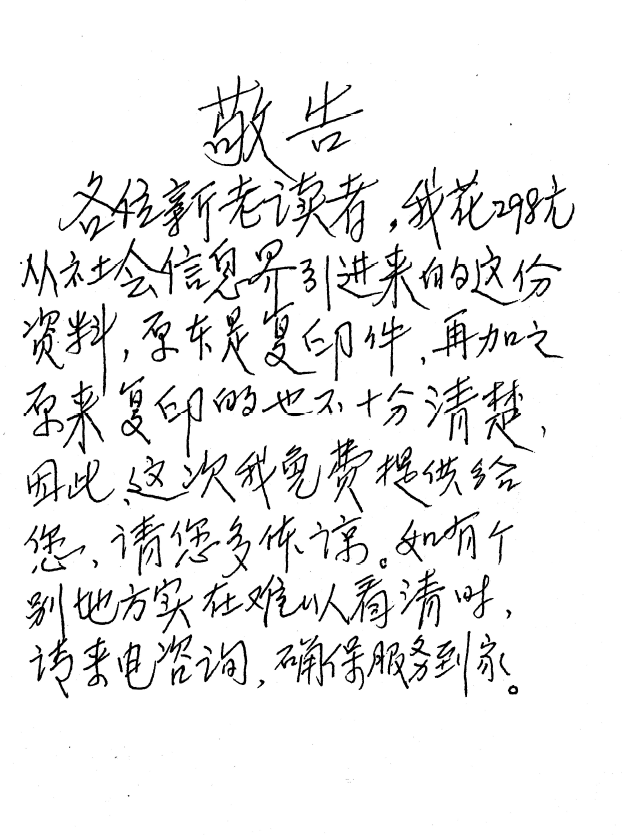 敬告
各位新老读者,我花298元
从社会信息界引进来的这份
资料,原本是复印件,再加之
原来复印的也不十分清楚,
因此,这次我免费提供给
您,请您多体谅。如有个
别地方实在难以看清时,
请来电咨询,确保服务到家。